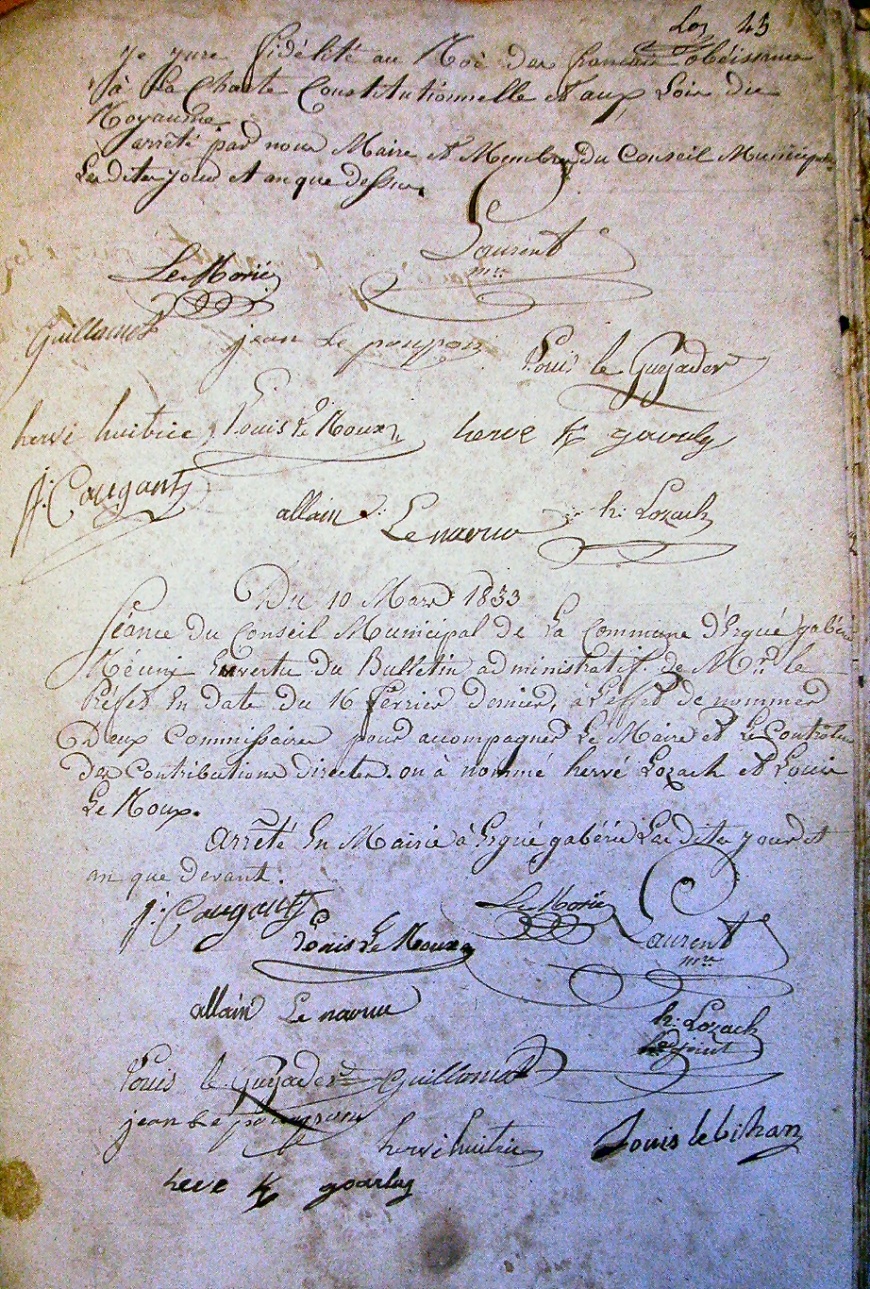 Loz 45
je jure fidélité au Roi des Francais obéissance
à la Charte Constitutionnelle et aux Lois du
Royaume.
arrêté par nous Maire et Membres du Conseil Municipal
Les dites jour et an que dessus.
Laurent
mre
Le Norie
Guillamet jean Le poupon Louis le Guyader
hervé huitric Louis Le Roux herve K gourlay
j: Caugant allain Le naour h: Lozach
Du 10 Mars 1833
Séance du Conseil Municipal de La Commune d'Ergué gabéric
Réuni En vertu du Bulletin administratif de Mr. le
Préfet En date du 16 Fevrier dernier, à L'effet de nommer
Deux Commissaires pour accompagner Le Maire et Le Controleur
Des Contributions directes. on à nommé hervé Lozach et Louis
Le Roux.
arrêté En Mairie à Ergué gabéric Les dites jour et
an que devant.
j: Caugant Le Norie
Louis Le Roux Laurent
mre
allain Le naour h: Lozach
adjoint
Louis le Guyader Guillamet
jean Le poupon
hervé huitric Louis le bihan
herve K gourlay